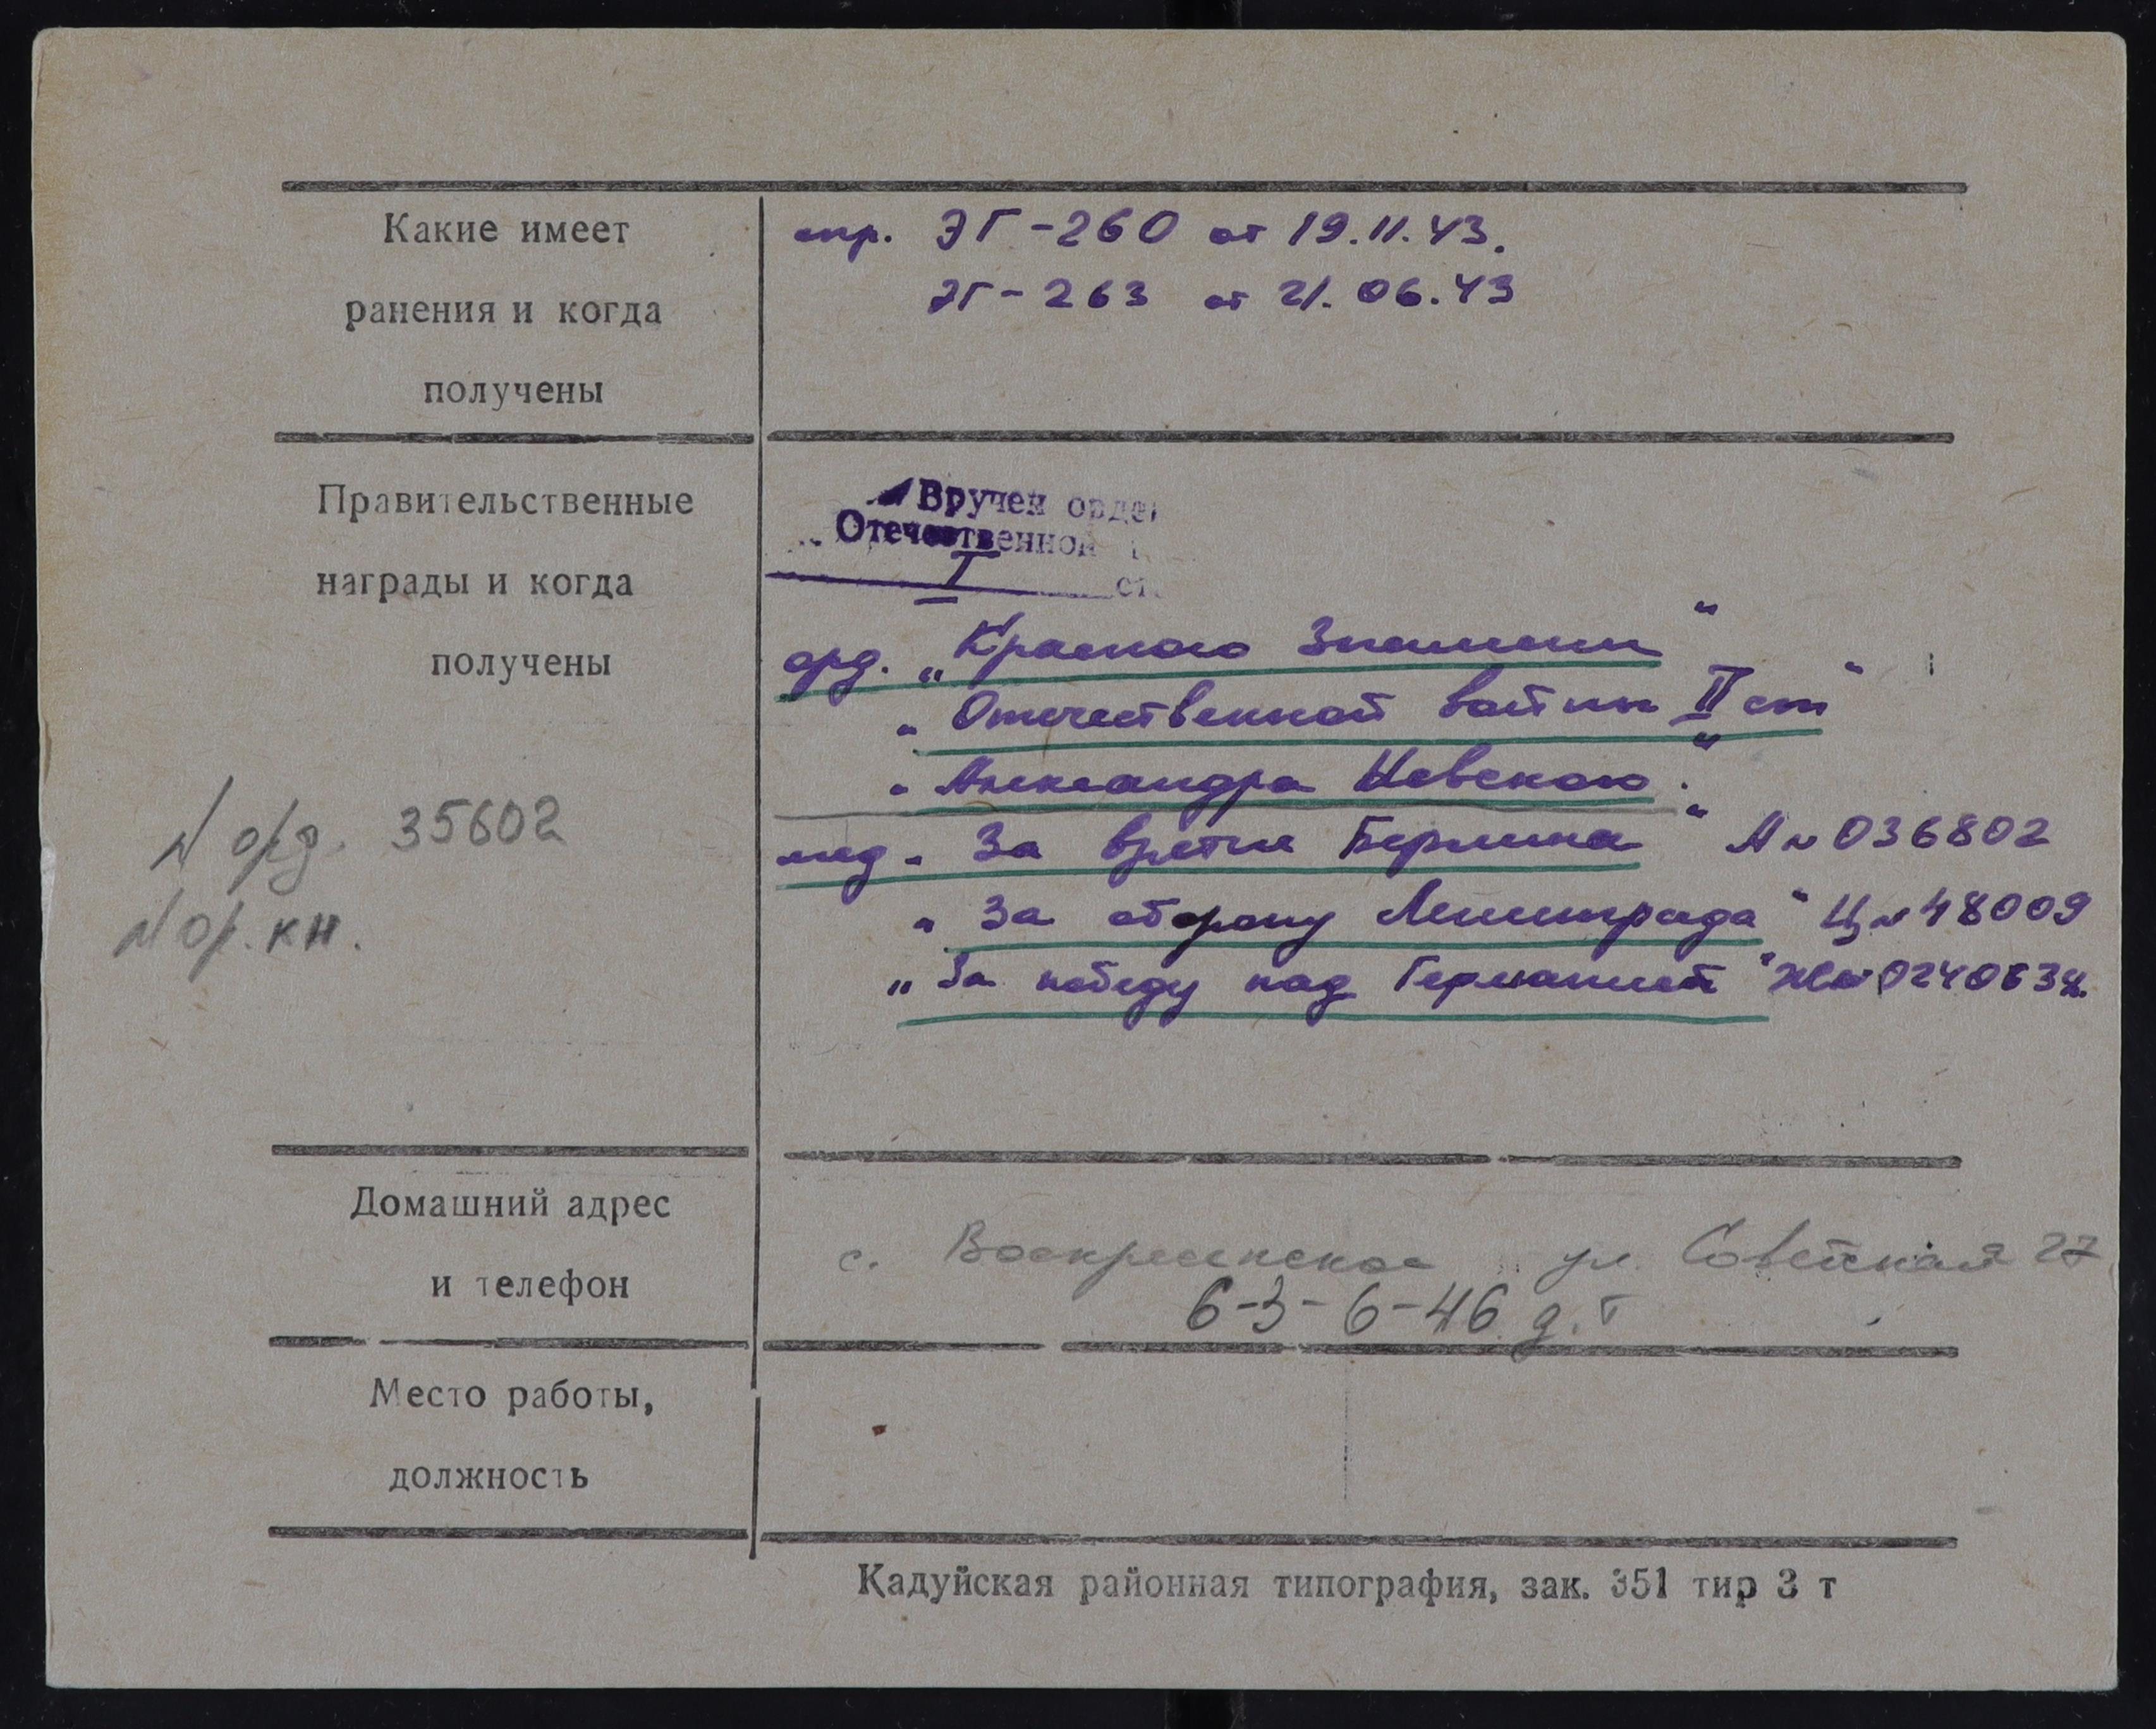 Какие имеет
ранения и когда
получены
спр. ЭГ-260 от 19.11.43.
ЭГ-263 от 21.06.43
Правительственные
награды и когда
получены
Вручен орде
Отечественной
I ст.
орд. „Красного Знамени"
„Отечественной войны II ст"
„Александра Невского"
мед. „За взятие Берлина" А № 036802
„За оборону Ленинграда" Ц № 48009
„За победу над Германией"
N орд. 35602
N ор. кн.
Домашний адрес
и телефон
с. Воскресенское ул. Советская 27
6-3-6-46 д.т
Место работы,
должность
Кадуйская районная типография, зак. 351 тир 3 т